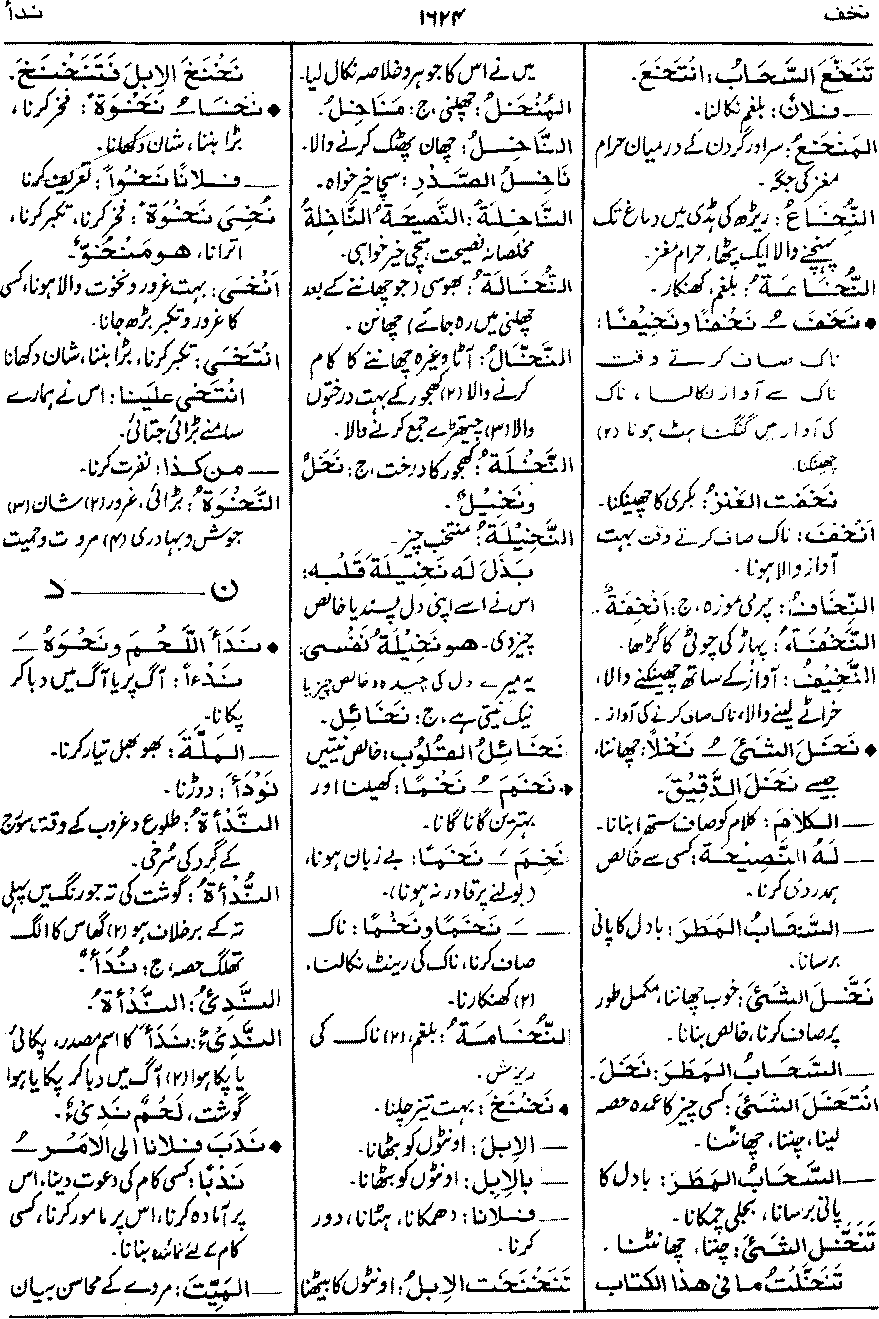 نخف
۱۶۲۴
ندأ
تَنَخَّعَ السَّحَابُ: انْتَخَعَ۔
— فلانٌ: بلغم نکالنا۔
المَنْخَعُ: سر اور گردن کے درمیان حرام
مغز کی جگہ۔
النُّخَاعُ: ریڑھ کی ہڈی میں دماغ تک
پہنچنے والا ایک پٹھا، حرام مغز۔
النُّخَاعَةُ: بلغم، کھنکار۔
• نَخَفَ ـُ نَخْفًا ونَخِيفًا:
ناک صاف کرتے وقت
ناک سے آواز نکالنا، ناک
کی آواز میں گنگناہٹ ہونا (۲)
چھینکنا۔
نَخَفَتِ العَنْزُ: بکری کا چھینکنا۔
اَنْخَفَ: ناک صاف کرتے وقت بہت
آواز والا ہونا۔
النِّخَافُ: چرمی موزہ، ج: اَنْخِفَةٌ۔
النَّخْفَةُ: پہاڑ کی چوٹی کا گڑھا۔
النَّخِيفُ: آواز کے ساتھ چھینکنے والا،
خراٹے لینے والا، ناک صاف کرنے کی آواز۔
• نَخَلَ الشَّيْئَ ـُ نَخْلًا: چھاننا،
جیسے نَخَلَ الدَّقِيقَ۔
— الكلامَ: کلام کو صاف ستھرا بنانا۔
— لَهُ النَّصِيحَةَ: کسی سے خالص
ہمدردی کرنا۔
— السَّحَابُ المَطَرَ: بادل کا پانی
برسانا۔
نَخَّلَ الشَّيْئَ: خوب چھاننا، مکمل طور
پر صاف کرنا، خالص بنانا۔
— السَّحَابُ المَطَرَ: نَخَلَ۔
انْتَخَلَ الشَّيْئَ: کسی چیز کا عمدہ حصہ
لینا، چننا، چھانٹنا۔
— السَّحَابُ المَطَرَ: بادل کا
پانی برسانا، بجلی چمکانا۔
تَنَخَّلَ الشَّيْئَ: چننا، چھانٹنا۔
تَنَخَّلْتُ ما في هذا الكتاب
میں نے اس کا جوہر و خلاصہ نکال لیا۔
المُنْخُلُ: چھلنی، ج: مَنَاخِلُ۔
النَّاخِلُ: چھان پھٹک کرنے والا۔
نَاخِلُ الصَّدْرِ: سچا خیر خواہ۔
النَّاخِلَةُ: النَّصِيحَةُ النَّاخِلَةُ
مخلصانہ نصیحت، سچی خیر خواہی۔
النُّخَالَةُ: بھوسی (جو چھاننے کے بعد
چھلنی میں رہ جائے) چھانن۔
النَّخَّالُ: آٹا وغیرہ چھاننے کا کام
کرنے والا (۲) کھجور کے بہت درختوں
والا (۳) چیتھڑے جمع کرنے والا۔
النَّخْلَةُ: کھجور کا درخت، ج: نَخْلٌ
ونَخِيلٌ۔
النَّخِيلَةُ: منتخب چیز۔
بَذَلَ لَه نَخِيلَةَ قَلْبِه:
اس نے اسے اپنی دل پسند یا خالص
چیز دی۔ هو نَخِيلَةُ نَفْسِي:
یہ میرے دل کی چیدہ و خالص چیز یا
نیک نیتی ہے، ج: نَخَائِل۔
نَخَائِلُ القُلُوبِ: خالص نیتیں
• نَخَمَ ـُ نَخْمًا: کھیلنا اور
بہترین گانا گانا۔
نَخِمَ ـَ نَخَمًا: بے زبان ہونا،
(بولنے پر قادر نہ ہونا)۔
— ـَ نَخَمًا ونَخْمًا: ناک
صاف کرنا، ناک کی رینٹ نکالنا،
(۲) کھنکارنا۔
النُّخَامَةُ: بلغم، (۲) ناک کی
ریزش۔
• نَخْنَخَ: بہت تیز چلنا۔
— الإبلَ: اونٹوں کو بٹھانا۔
— بالإبل: اونٹوں کو بٹھانا۔
— فلانا: دھمکانا، ہٹانا، دور
کرنا۔
تَنَخْنَخَتِ الإبلُ: اونٹوں کا بیٹھنا
نَخْنَخَ الإبلَ فَتَنَخْنَخَ۔
• نَخَا ـُ نَخْوَةً: فخر کرنا،
بڑا بننا، شان دکھانا۔
— فلانًا نَخْوًا: تعریف کرنا
نُخِيَ نَخْوَةً: فخر کرنا، تکبر کرنا،
اترانا، هو مَنْخُوٌّ۔
اَنْخَى: بہت غرور و نخوت والا ہونا، کسی
کا غرور و تکبر بڑھ جانا۔
انْتَخَى: تکبر کرنا، بڑا بننا، شان دکھانا
انْتَخَى علينا: اس نے ہمارے
سامنے بڑائی جتائی۔
— من كذا: نفرت کرنا۔
النَّخْوَةُ: بڑائی، غرور (۲) شان (۳)
جوش و بہادری (۴) مروت و حمیت
ن — د
• نَدَأَ اللَّحْمَ ونَحْوَهُ ـَ
نَدْءًا: آگ پر یا آگ میں دبا کر
پکانا۔
— المَلَّةَ: بھوبھل تیار کرنا۔
نَوْدَأَ: دوڑنا۔
النَّدْأَةُ: طلوع و غروب کے وقت سورج
کے گرد کی سُرخی۔
النُّدْأَةُ: گوشت کی تہ جو رنگ میں پہلی
تہ کے برخلاف ہو (۲) گھاس کا الگ
تھلگ حصہ، ج: نُدَأٌ۔
النَّدِئُ: النَّدْأَةُ۔
النَّدِيْءُ: نَدَأَ کا اسم مصدر، پکائی
یا پکا ہوا (۲) آگ میں دبا کر پکایا ہوا
گوشت، لَحْمٌ نَدِيْءٌ۔
• نَدَبَ فلانا الى الامر ـُ
نَدْبًا: کسی کام کی دعوت دینا، اس
پر آمادہ کرنا، اس پر مامور کرنا، کسی
کام کے لئے نمائندہ بنانا۔
— المَيِّتَ: مردے کے محاسن بیان